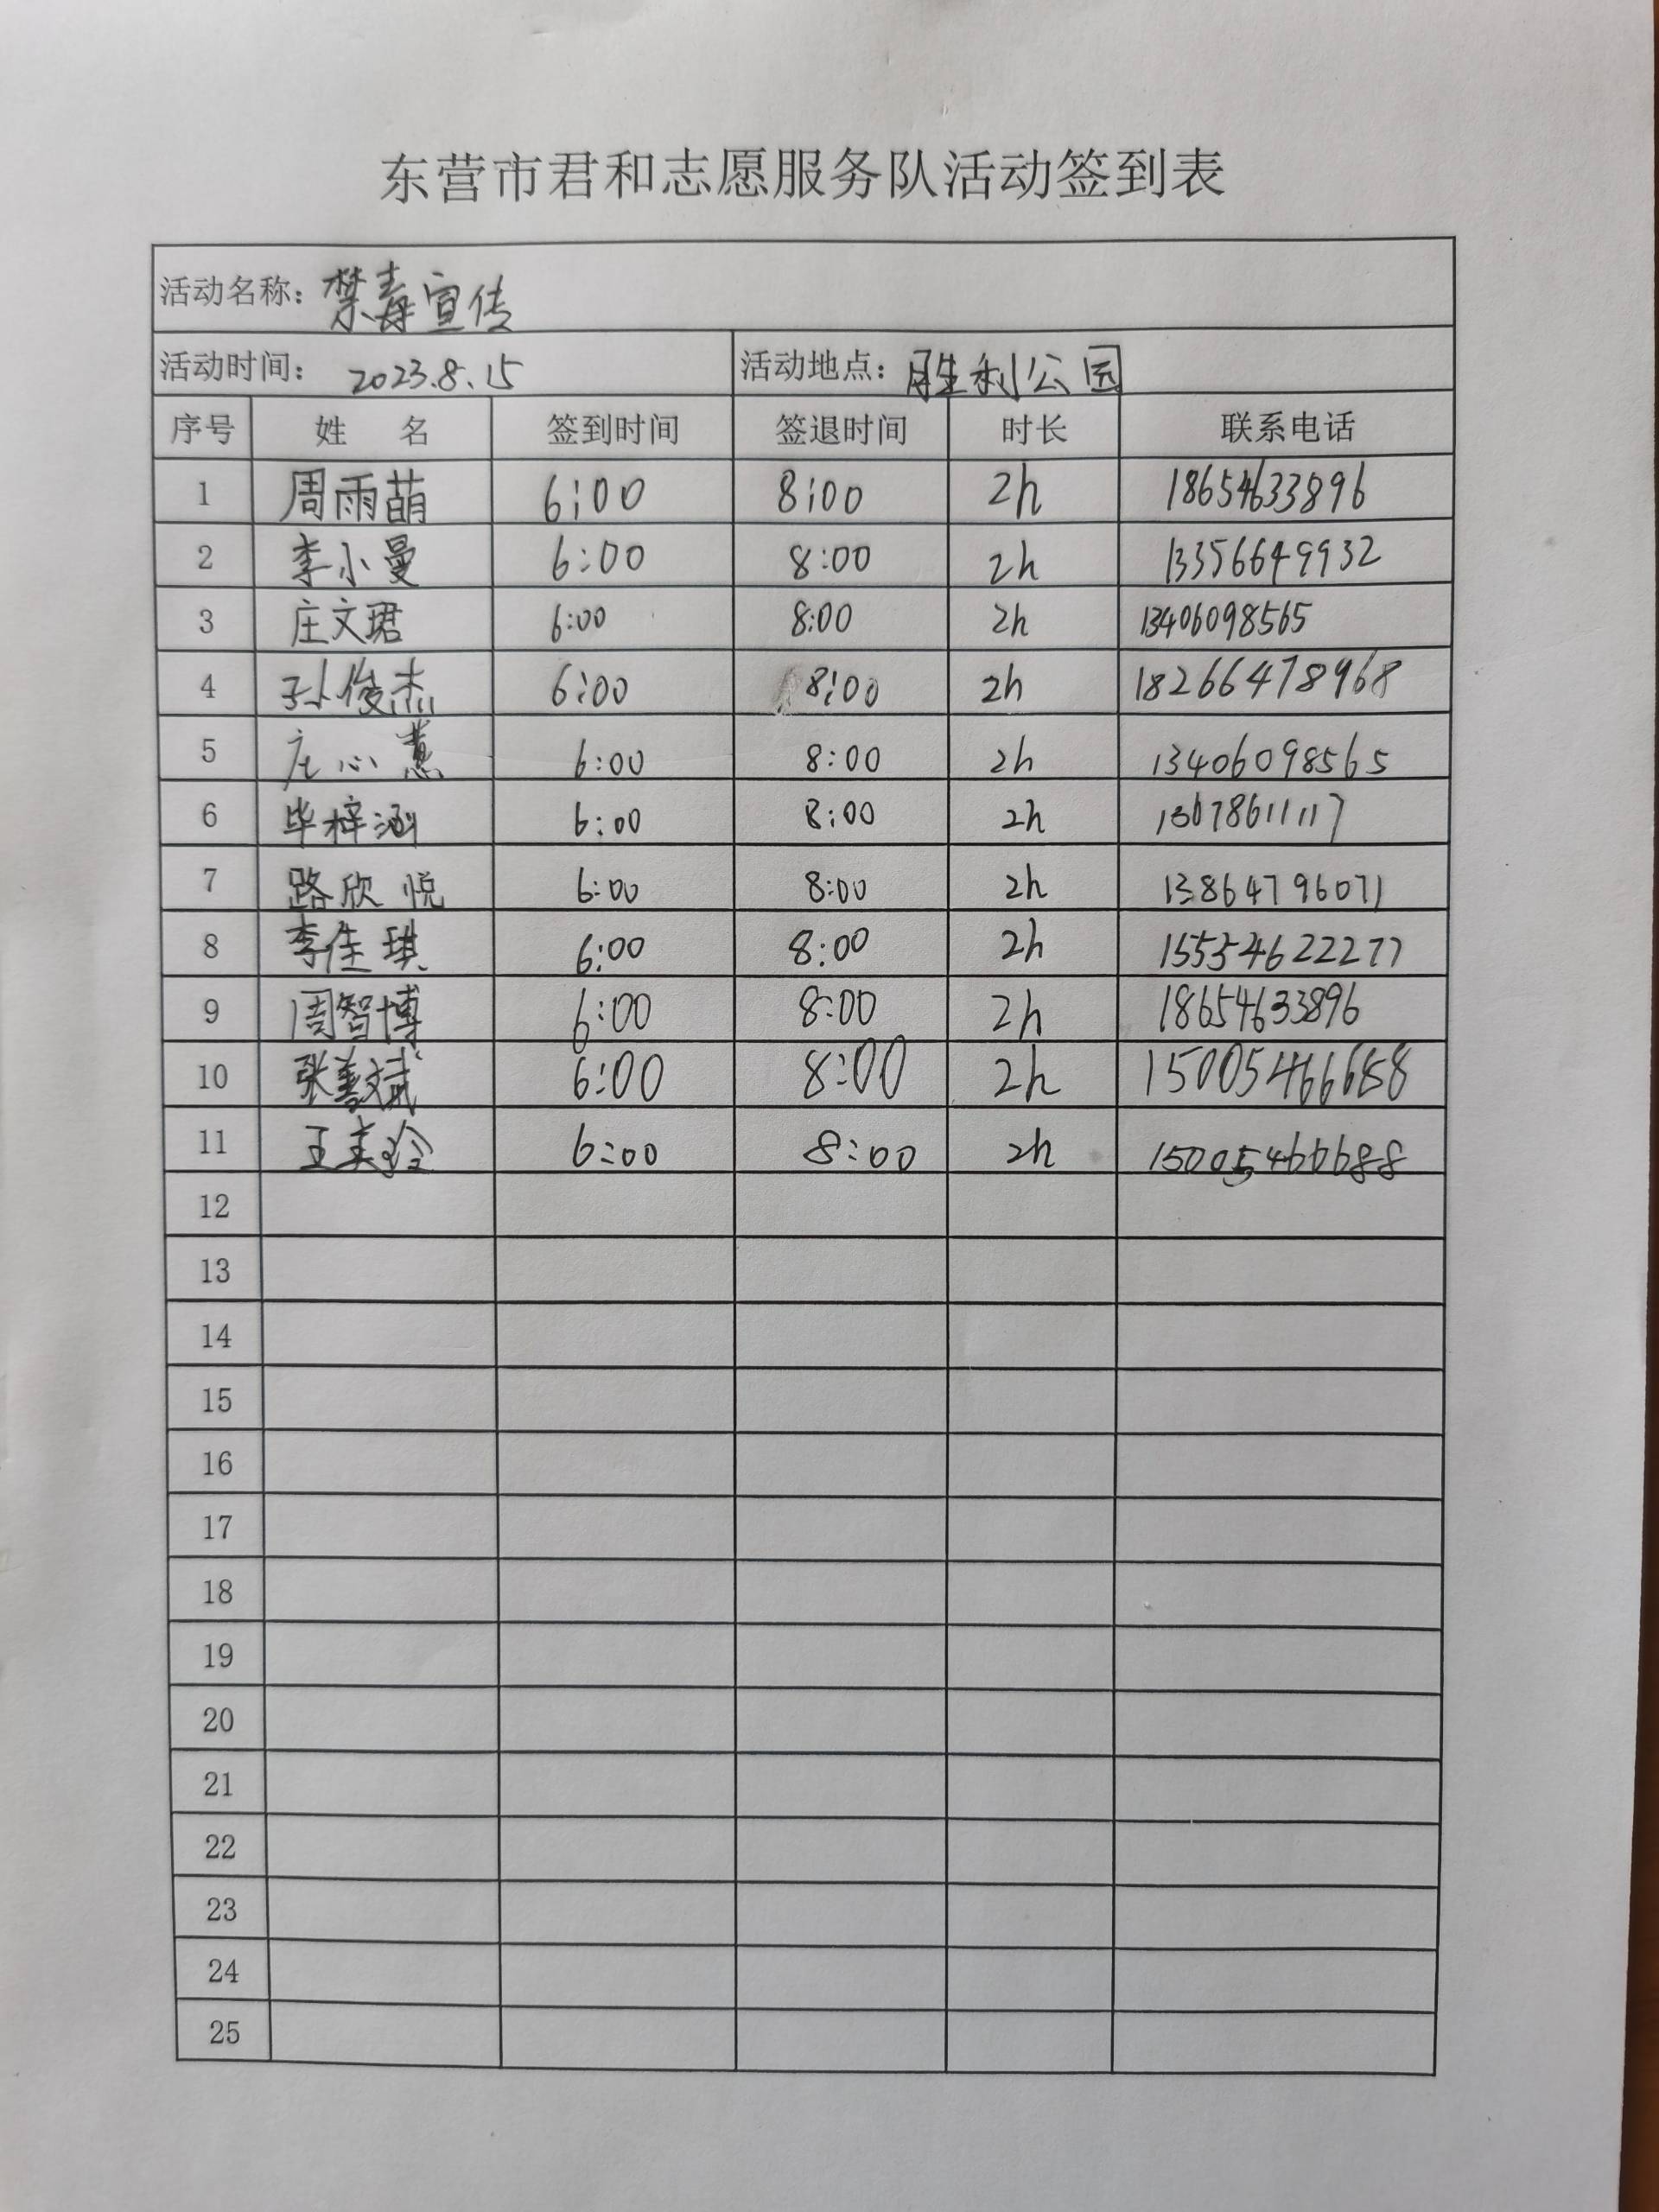 东营市君和志愿服务队活动签到表
活动名称：禁毒宣传
活动时间： 2023.8.15 活动地点：胜利公园
序号 姓 名 签到时间 签退时间 时长 联系电话
1 周雨萌 6:00 8:00 2h 18654633896
2 李小曼 6:00 8:00 2h 13356649932
3 庄文珺 6:00 8:00 2h 13406098565
4 孙俊杰 6:00 8:00 2h 18266478968
5 庄心慧 6:00 8:00 2h 13406098565
6 毕梓涵 6:00 8:00 2h
7 路欣悦 6:00 8:00 2h 13864796071
8 李佳琪 6:00 8:00 2h 15554622277
9 周智博 6:00 8:00 2h 18654633896
10 张善斌 6:00 8:00 2h 15005466688
11 王美玲 6:00 8:00 2h 15005466688
12
13
14
15
16
17
18
19
20
21
22
23
24
25